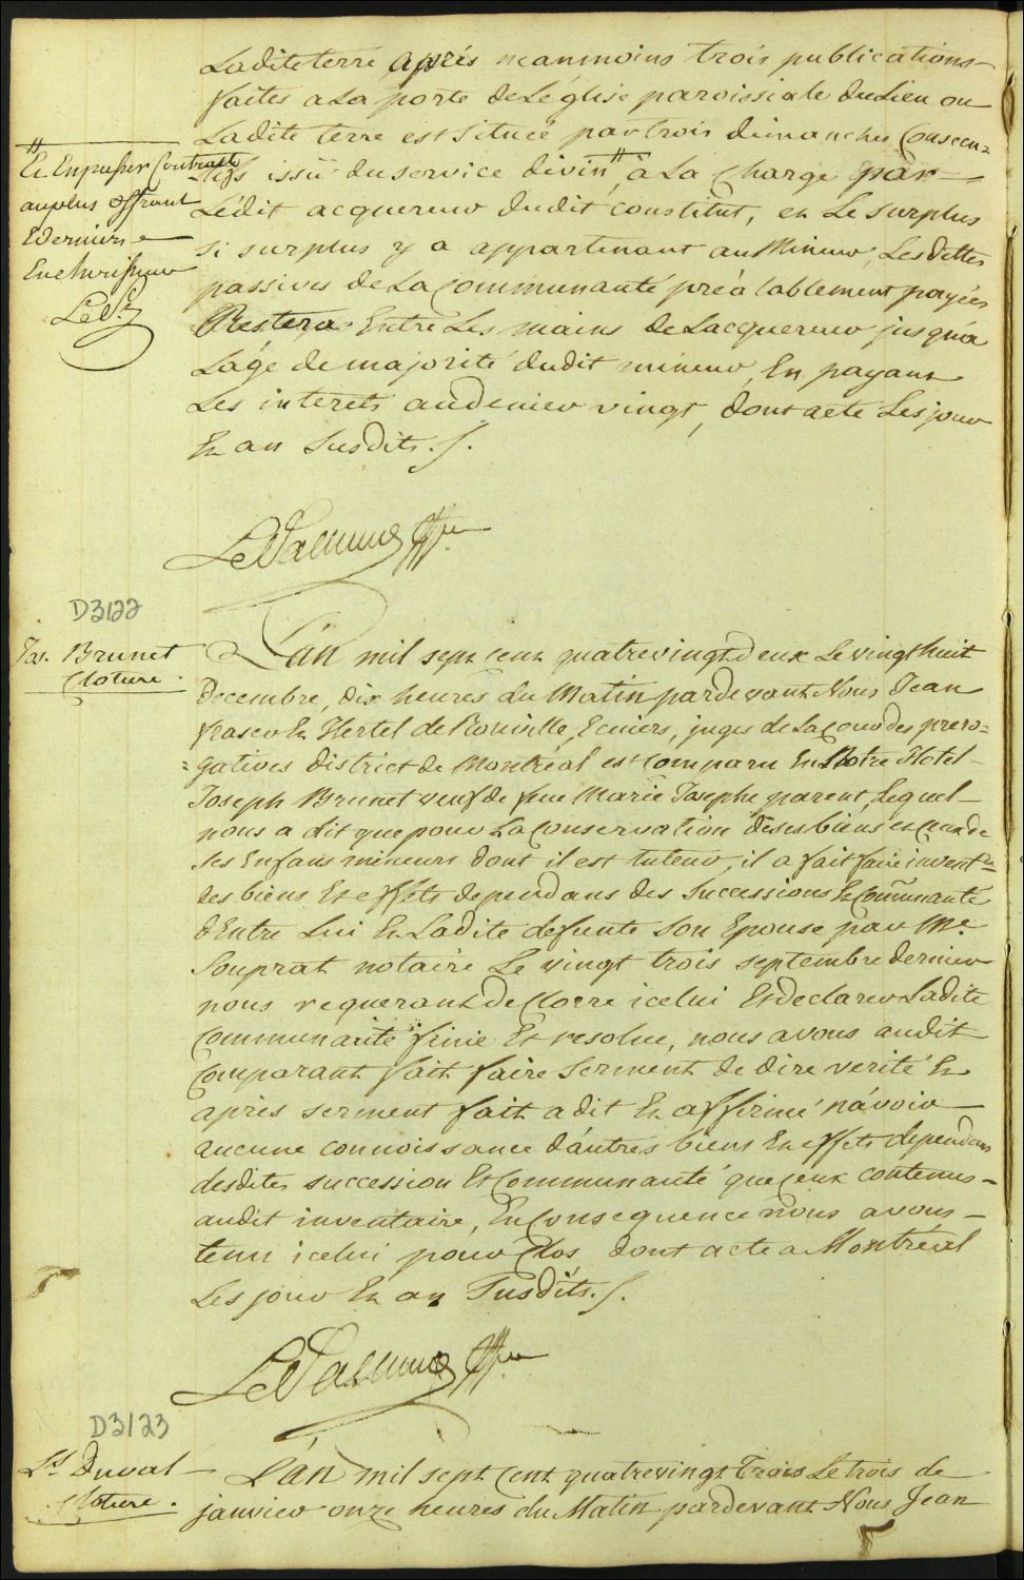 Ladite terre après neanmoins trois publications
faites a La porte de Léglise paroissiale du Lieu ou
Ladite terre est Située par trois dimanches Consecu=
tifs issü du service divin # à La Charge par
Lédit acquereur dudit constitut, et Le surplus
si surplus y a appartenant au Mineur, Les dettes
passives de La Communauté préalablement payées
Restera Entre Les mains de Lacquereur jusqu'a
Lage de majorité dudit mineur, En payant
Les interets au denier vingt, dont acte Les jour
Et an Susdits ./.
#
Et En passer Contract
au plus offrant
Et dernier
Encherisseur
LeG<sup>r</sup>
LePallieur Gffier
D3122
Jos. Brunet
Cloture.
L'an mil sept cent quatrevingt deux Le vingt huit
Decembre, dix heures du Matin pardevant Nous Jean
frasen Et Hertel de Rouville, Ecuiers, juges de La Cour des prero=
=gatives district de Montréal est Comparu En Notre Hotel
Joseph Brunet veuf de feue Marie Josephe parent, Lequel
nous a dit que pour La Conservation de ses biens et Ceux de
ses Enfans mineurs dont il est tuteur, il a fait faire invent<sup>re</sup>
des biens Et effets dependans des Successions Et Com̃unauté
d'Entre Lui Et Ladite defunte Son Epouse par M<sup>e</sup>
Souprat notaire Le vingt trois septembre dernier
nous requerant de Clorre icelui Et declarer Ladite
Communauté finie Et resolue, nous avons audit
Comparant fait faire Serment de dire verité Et
après serment fait a dit Et affirmé n'avoir
aucune connoissance d'autres biens Et effets dependans
desdites succession Et Communauté que Ceux contenus
audit inventaire, En Consequence Nous avons
tenu icelui pour Clos dont acte a Montréal
Les jour Et an Susdits ./.
LePallieur Gffier
D3123
L<sup>s</sup> Duval
Cloture.
L'an mil sept Cent quatrevingt Trois Le trois de
janvier onze heures du Matin pardevant Nous Jean